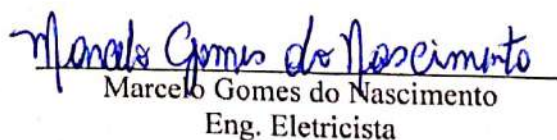 Marcelo Gomes do Nascimento
Marcelo Gomes do Nascimento
Eng. Eletricista